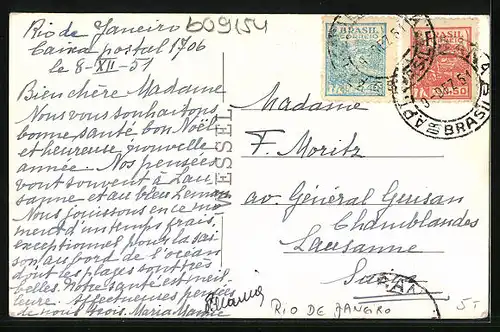 Rio de Janeiro
Caixa postal 1706
le 8-XII-51
Bien chère Madame
Nous vous souhaitons
bonne santé bon Noël
et heureuse nouvelle
année. Nos pensées
vont souvent à Lau-
sanne et au bleu Leman.
Nous jouissons en ce mo-
ment d'un temps frais,
exceptionnel pour la sai-
son, au bord de l'océan
dont les plages sont très
belles. Notre santé est meil-
leure. Affectueuses pensées
de nous trois. Maria
609154
WESSEL
BRASIL
CORREIO
BRASIL
CORREIO
BRASIL
Madame
F. Moritz
av. Général Guisan
Chamblandes
Lausanne
RIO DE JANEIRO
5.-